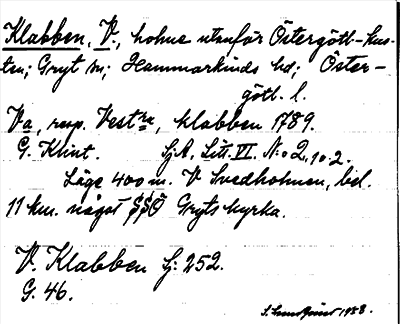 Klabben, V., holme utanför Östergötl-kus-
ten; Gryt sn; Hammarkinds hd; Öster-
götl. l.
Va, resp. Vestra, klabben 1789.
G. Klint. Sj.A, Litt. VI. N:o 2, 10 2.
Läge 400 m. V Svedholmen, bel.
11 km. något SSÖ Gryts kyrka.
V. Klabben Sj. 252.
G. 46.
1938.